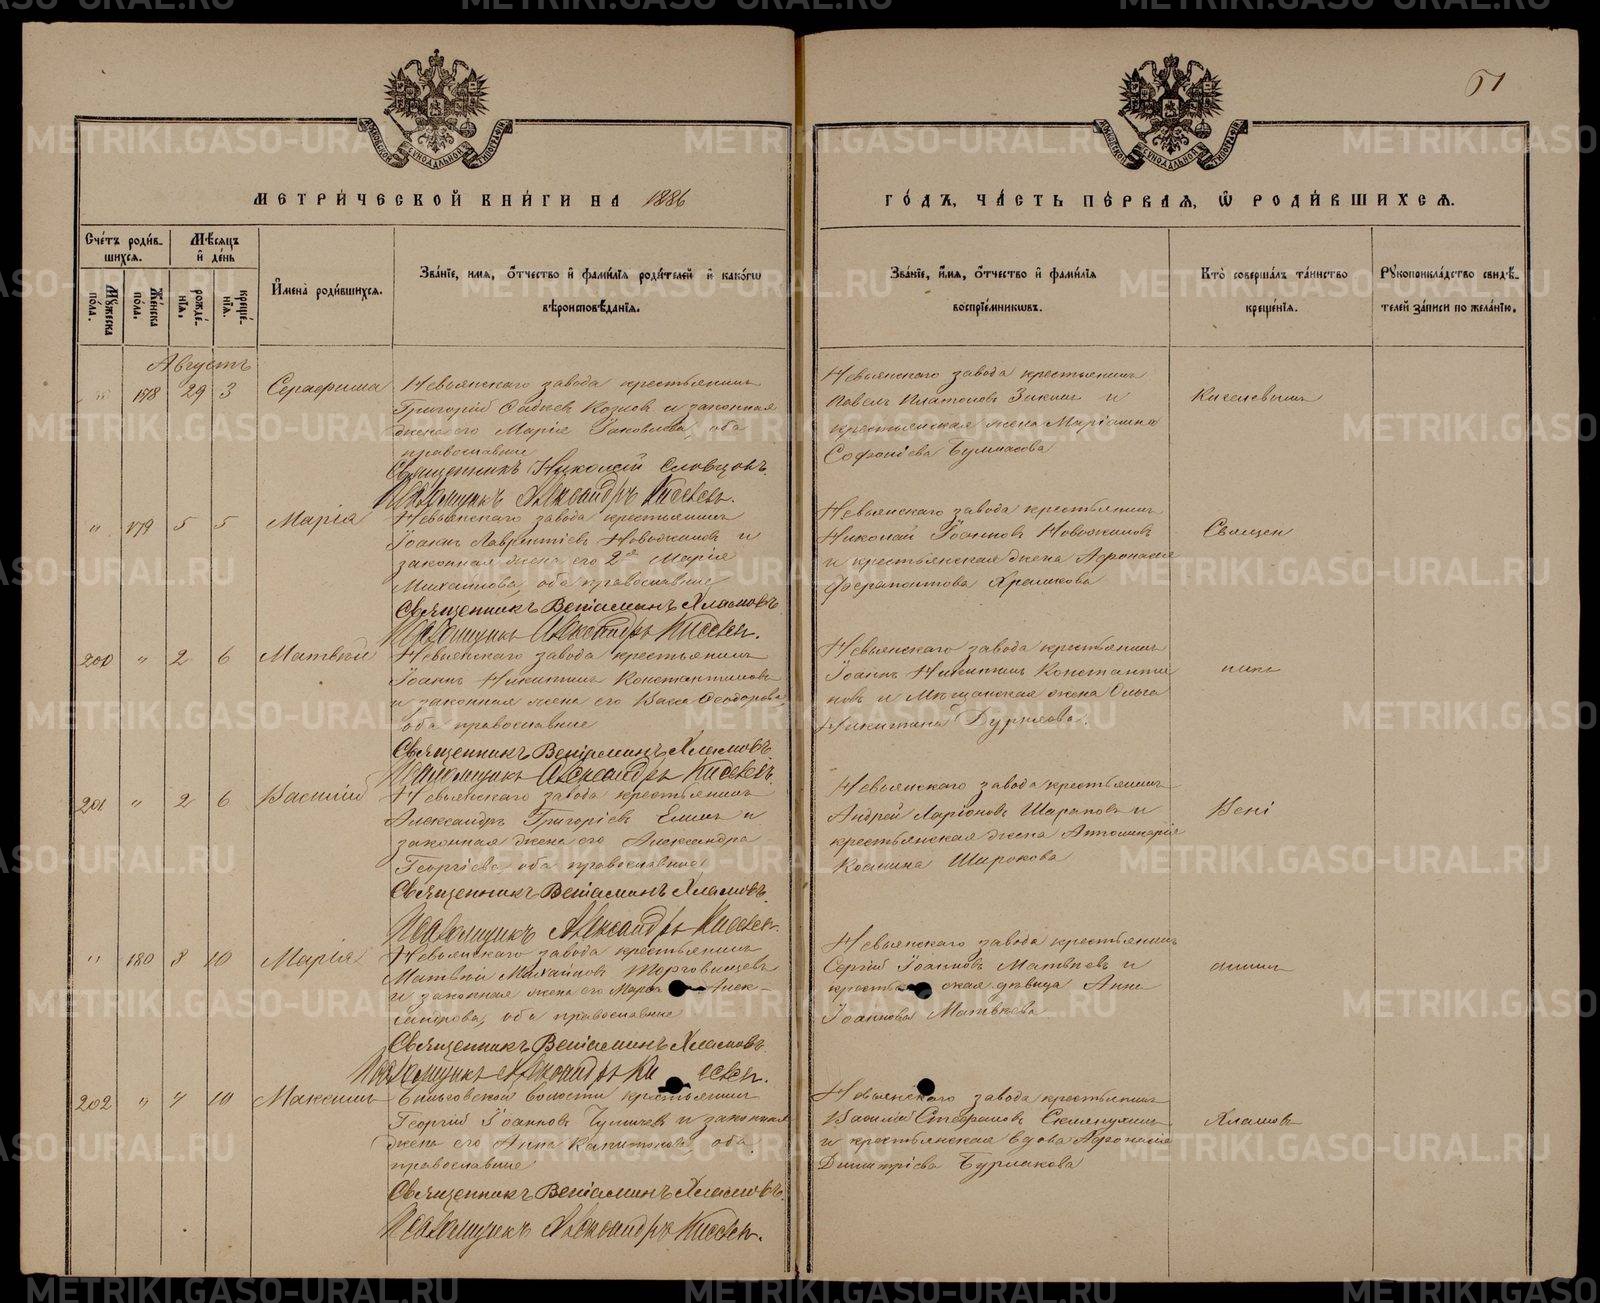 51
МОСКОВСКОЙ СѴНОДАЛЬНОЙ ТИПОГРАФІИ
МОСКОВСКОЙ СѴНОДАЛЬНОЙ ТИПОГРАФІИ
МЕТРИ́ЧЕСКОЙ КНИ́ГИ НА 1886
ГО́ДЪ, ЧА́СТЬ ПЕ́РВАЯ, Ѡ РОДИ́ВШИХСЯ.
Сче́тъ роди́в-
шихся.
Мꙋжеска по́ла.
Же́нска по́ла.
Мѣ́сяцъ
и҆ де́нь
рожде́-
нїя.
креще́-
нїя.
И҆мена̀ роди́вшихся.
Зва́нїе, и҆мя, ѻ҆́тчество и҆ фами́лїя роди́телей и҆ како́гѡ
вѣроисповѣ́данїя.
Зва́нїе, и҆́мя, ѻ҆́тчество и҆ фами́лїя
воспрїе́мникѡвъ.
Кто̀ соверша́лъ та́инство
креще́нїя.
Рꙋкоприкла́дство свидѣ́-
телей за́писи по жела́нїю.
Августъ
" 178 29 3 Серафима
Невьянскаго завода крестьянинъ
Григорій Козловъ и законная
жена его Марія Іаковлева, оба
православные
Священникъ Николай Словцовъ.
Псаломщикъ Александръ Киселев.
Невьянскаго завода крестьянинъ
Павелъ Платоновъ Зикинъ и
крестьянская жена Маріамна
Софоніева
Киселевымъ
" 179 5 5 Марія
Невьянскаго завода крестьянинъ
Іоаннъ Лаврентіевъ Новожиловъ и
законная жена его 2я Марія
Михаилова, оба православные
Священникъ Веніаминъ Хламовъ
Псаломщикъ Александръ Киселев.
Невьянскаго завода крестьянинъ
Николай Іоанновъ Новожиловъ
и крестьянская жена Афонасія
Ферапонтова Храмкова
Священ
200 " 2 6 Матвѣй
Невьянскаго завода крестьянинъ
Іоаннъ Никитинъ Константиновъ
и законная жена его Васса Ѳеодорова,
оба православные
Священникъ Веніаминъ Хламовъ
Псаломщикъ Александръ Киселевъ
Невьянскаго завода крестьянинъ
Іоаннъ Никитинъ Константи
новъ и Мѣщанская жена Ольга
Никитина Дурнова.
никъ
201 " 2 6 Василій
Невьянскаго завода крестьянинъ
Александръ Григоріевъ Елинъ и
законная жена его Александра
Георгіева, оба православные
Священникъ Веніаминъ Хламовъ.
Псаломщикъ Александръ Киселев.
Невьянскаго завода крестьянинъ
Андрей Ларіоновъ Шараповъ и
крестьянская жена Апполинарія
Космина Широкова
Вені
" 180 8 10 Марія
Невьянскаго завода крестьянинъ
Матвѣй Михайловъ Торговищевъ
и законная жена его Марѳа Алек-
сандрова, оба православные
Священникъ Веніаминъ Хламовъ.
Псаломщикъ Александръ Киселев.
Невьянскаго завода крестьянинъ
Сергій Іоанновъ Матвѣевъ и
крестьянская дѣвица Анна
Іоаннова Матвѣева
аминъ
202 " 7 10 Максимъ
волости крестьянинъ
Георгій Іоанновъ и законная
жена его Анна Капитонова, оба
православные
Священникъ Веніаминъ Хламовъ.
Псаломщикъ Александръ Киселев.
Невьянскаго завода крестьянинъ
Василій Стефановъ
и крестьянская вдова Афонасія
Димитріева Бурмакова
Хламовъ